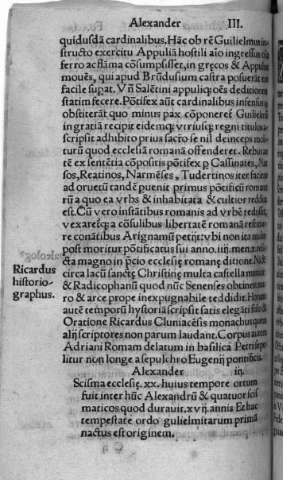 Alexander III.
quidusdā cardinalibus. Hāc ob rē Guilielmus in-
structo exercitu Appuliā hostili aīo ingressus
ferro ac flāma cōsumpsisset, in gręcos & Appulos
mouēs, qui apud Brūdusium castra posuerāt eos
facile supat. Vn̄ Salētini appuliq; oēs deditionem
statim fecere. Pōtifex aūt cardinalibus infensus
obstiterāt quo minus pax cōponeret Guilielmū
in gratiā recipit eidemq; vtriusq; regni titulos a-
scripsit adhibito prius sacro se nil deinceps
turū quod ecclesiā romanā offenderet. Rebus
te ex sententia cōpositis pōtifex p Cassinates,
sos, Reatinos, Narnēses, Tudertinos iter faciens
ad oruetū tandē puenit primus pōtificū romano
rū a quo ea vrbs & inhabitata & cultior reddita
est. Cū vero instātibus romanis ad vrbē redisset,
vexaretq; a cōsulibus libertatē romanā
re conātibus Arignanū petijt vbi non ita multo
post moritur pōtificatus sui anno. iiij. mense
cta magno in p̄cio ecclesię romanę ditione. Nā &
circa lacū sanctę Christinę multa castella muniuit
& Radicophanū quod nūc Senenses obtinēt mu-
ro & arce prope inexpugnabile reddidit. Horum
autē temporū hystoriā scripsit satis elegāti stilo &
Oratione Ricardus Cluniacēsis monachus quem
alij scriptores non parum laudant. Corpus autem
Adriani Romam delatum in basilica Petri sepe
litur non longe a sepulchro Eugenij pontificis.
Ricardus
historio-
graphus.
Alexander iij.
Scisma ecclesię. xx. huius tempore ortum
fuit inter hūc Alexandrū & quatuor scis
maticos quod durauit. xvij. annis Et hac
tempestate ordo guilielmitarum primū
nactus est originem.